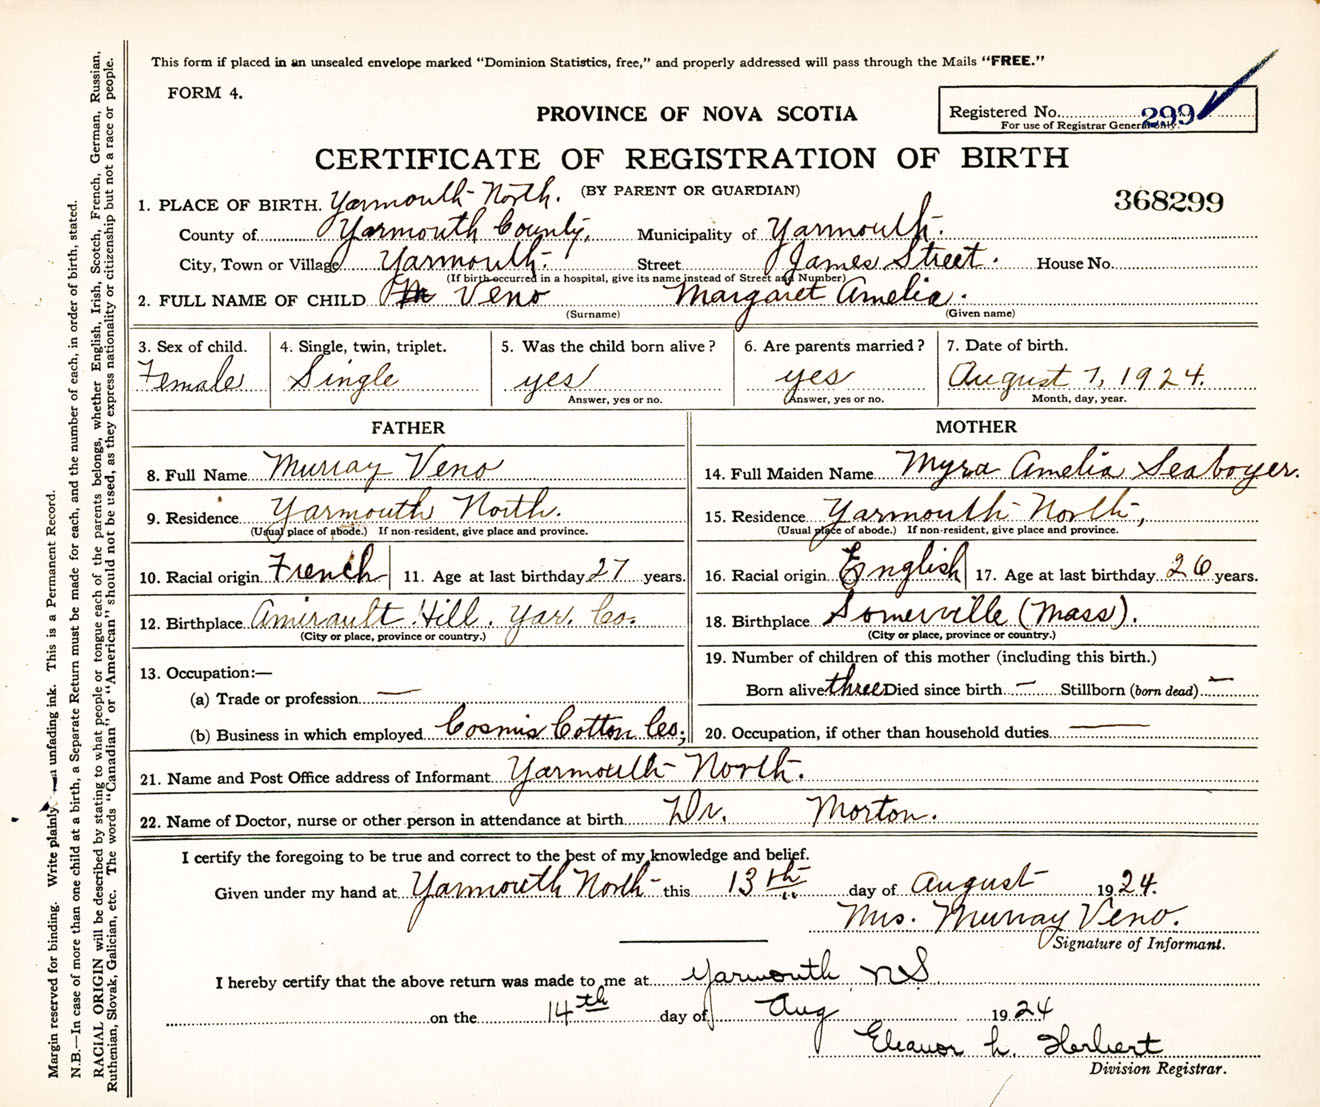 This form if placed in an unsealed envelope marked "Dominion Statistics, free," and properly addressed will pass through the Mails "FREE."
FORM 4.
PROVINCE OF NOVA SCOTIA
Registered No. 299
For use of Registrar General only.
CERTIFICATE OF REGISTRATION OF BIRTH
(BY PARENT OR GUARDIAN)
368299
1. PLACE OF BIRTH. Yarmouth North.
County of Yarmouth County, Municipality of Yarmouth.
City, Town or Village Yarmouth. Street James Street. House No.
(If birth occurred in a hospital, give its name instead of Street and Number)
2. FULL NAME OF CHILD Veno Margaret Amelia.
(Surname) (Given name)
3. Sex of child. 4. Single, twin, triplet. 5. Was the child born alive? 6. Are parents married? 7. Date of birth.
Female Single yes yes August 7, 1924.
Answer, yes or no. Answer, yes or no. Month, day, year.
FATHER MOTHER
8. Full Name Murray Veno 14. Full Maiden Name Myra Amelia Seaboyer.
9. Residence Yarmouth North. 15. Residence Yarmouth North,
(Usual place of abode.) If non-resident, give place and province. (Usual place of abode.) If non-resident, give place and province.
10. Racial origin French 11. Age at last birthday 27 years. 16. Racial origin English 17. Age at last birthday 26 years.
12. Birthplace Amirault Hill. Yar. Co. 18. Birthplace Somerville (Mass).
(City or place, province or country.) (City or place, province or country.)
13. Occupation:— 19. Number of children of this mother (including this birth.)
(a) Trade or profession — Born alive three Died since birth — Stillborn (born dead) —
(b) Business in which employed Cosmis Cotton Co; 20. Occupation, if other than household duties —
21. Name and Post Office address of Informant Yarmouth North.
22. Name of Doctor, nurse or other person in attendance at birth Dr. Morton.
I certify the foregoing to be true and correct to the best of my knowledge and belief.
Given under my hand at Yarmouth North this 13th day of August 1924.
Mrs. Murray Veno.
Signature of Informant.
I hereby certify that the above return was made to me at Yarmouth NS
on the 14th day of Aug 1924
Eleanor L. Herbert
Division Registrar.
Margin reserved for binding. Write plainly unfading ink. This is a Permanent Record.
N.B.—In case of more than one child at a birth, a Separate Return must be made for each, and the number of each, in order of birth, stated.
RACIAL ORIGIN will be described by stating to what people or tongue each of the parents belongs, whether English, Irish, Scotch, French, German, Russian,
Ruthenian, Slovak, Galician, etc. The words "Canadian" or "American" should not be used, as they express nationality or citizenship but not a race or people.